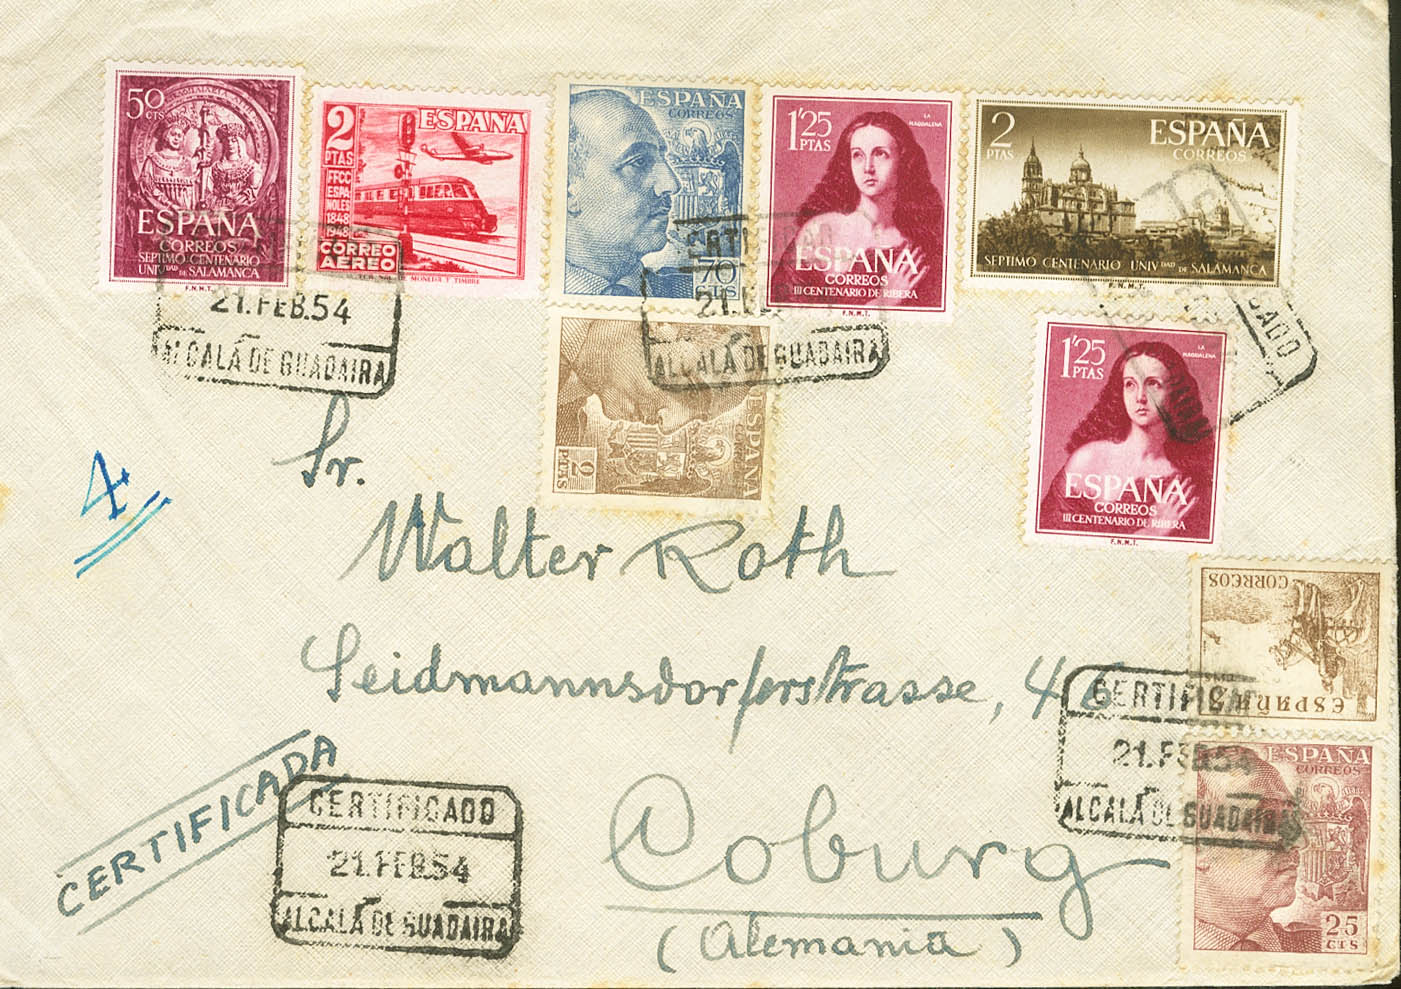 50
CTS
ESPAÑA
CORREOS
SEPTIMO CENTENARIO
UNIVDAD DE SALAMANCA
F.N.M.T.
2
PTAS
ESPAÑA
FFCC
ESPA-
ÑOLES
1848
1948
CORREO
AEREO
ESPAÑA
CORREOS
70
CTS
1'25
PTAS
LA
MAGDALENA
ESPAÑA
CORREOS
III CENTENARIO DE RIBERA
F.N.M.T.
2
PTAS
ESPAÑA
CORREOS
SEPTIMO CENTENARIO UNIVDAD DE SALAMANCA
F.N.M.T.
21.FEB.54
ALCALÁ DE GUADAIRA
21.
ALCALÁ DE GUADAIRA
ESPAÑA
2
PTAS
1'25
PTAS
LA
MAGDALENA
ESPAÑA
CORREOS
III CENTENARIO DE RIBERA
F.N.M.T.
4
Sr.
Walter Roth
Seidmannsdorferstrasse, 46
Coburg
(Alemania)
CERTIFICADA
CERTIFICADO
21.FEB.54
ALCALÁ DE GUADAIRA
CORREOS
ESPAÑA
21.FEB.54
ALCALÁ DE GUADAIRA
ESPAÑA
CORREOS
25
CTS